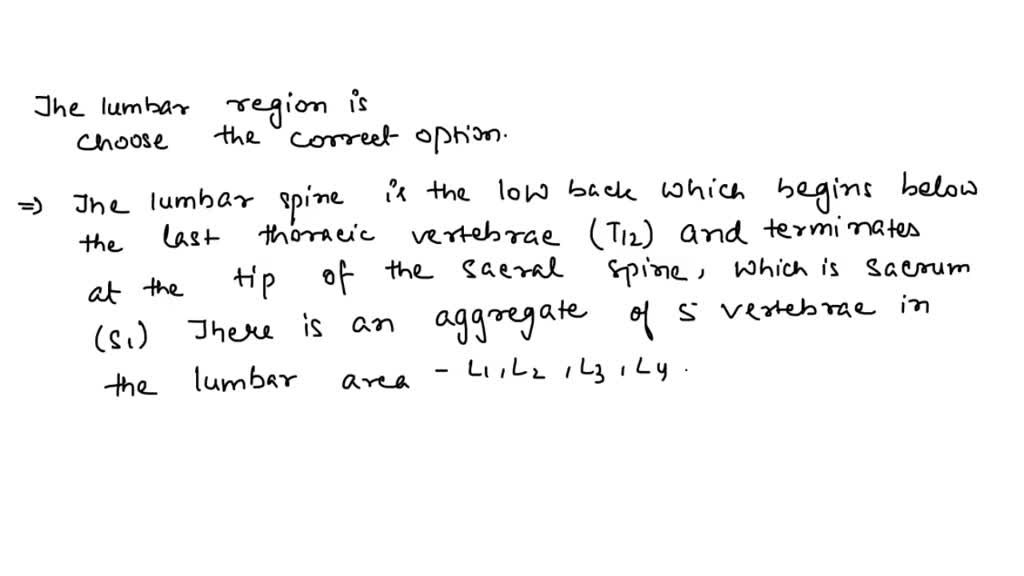 The lumbar region is
choose the correct option.
⇒ The lumbar spine is the low back which begins below
the last thoracic vertebrae (T12) and terminates
at the tip of the sacral spine, which is sacrum
(S1) There is an aggregate of 5 vertebrae in
the lumbar area - L1, L2, L3, L4.